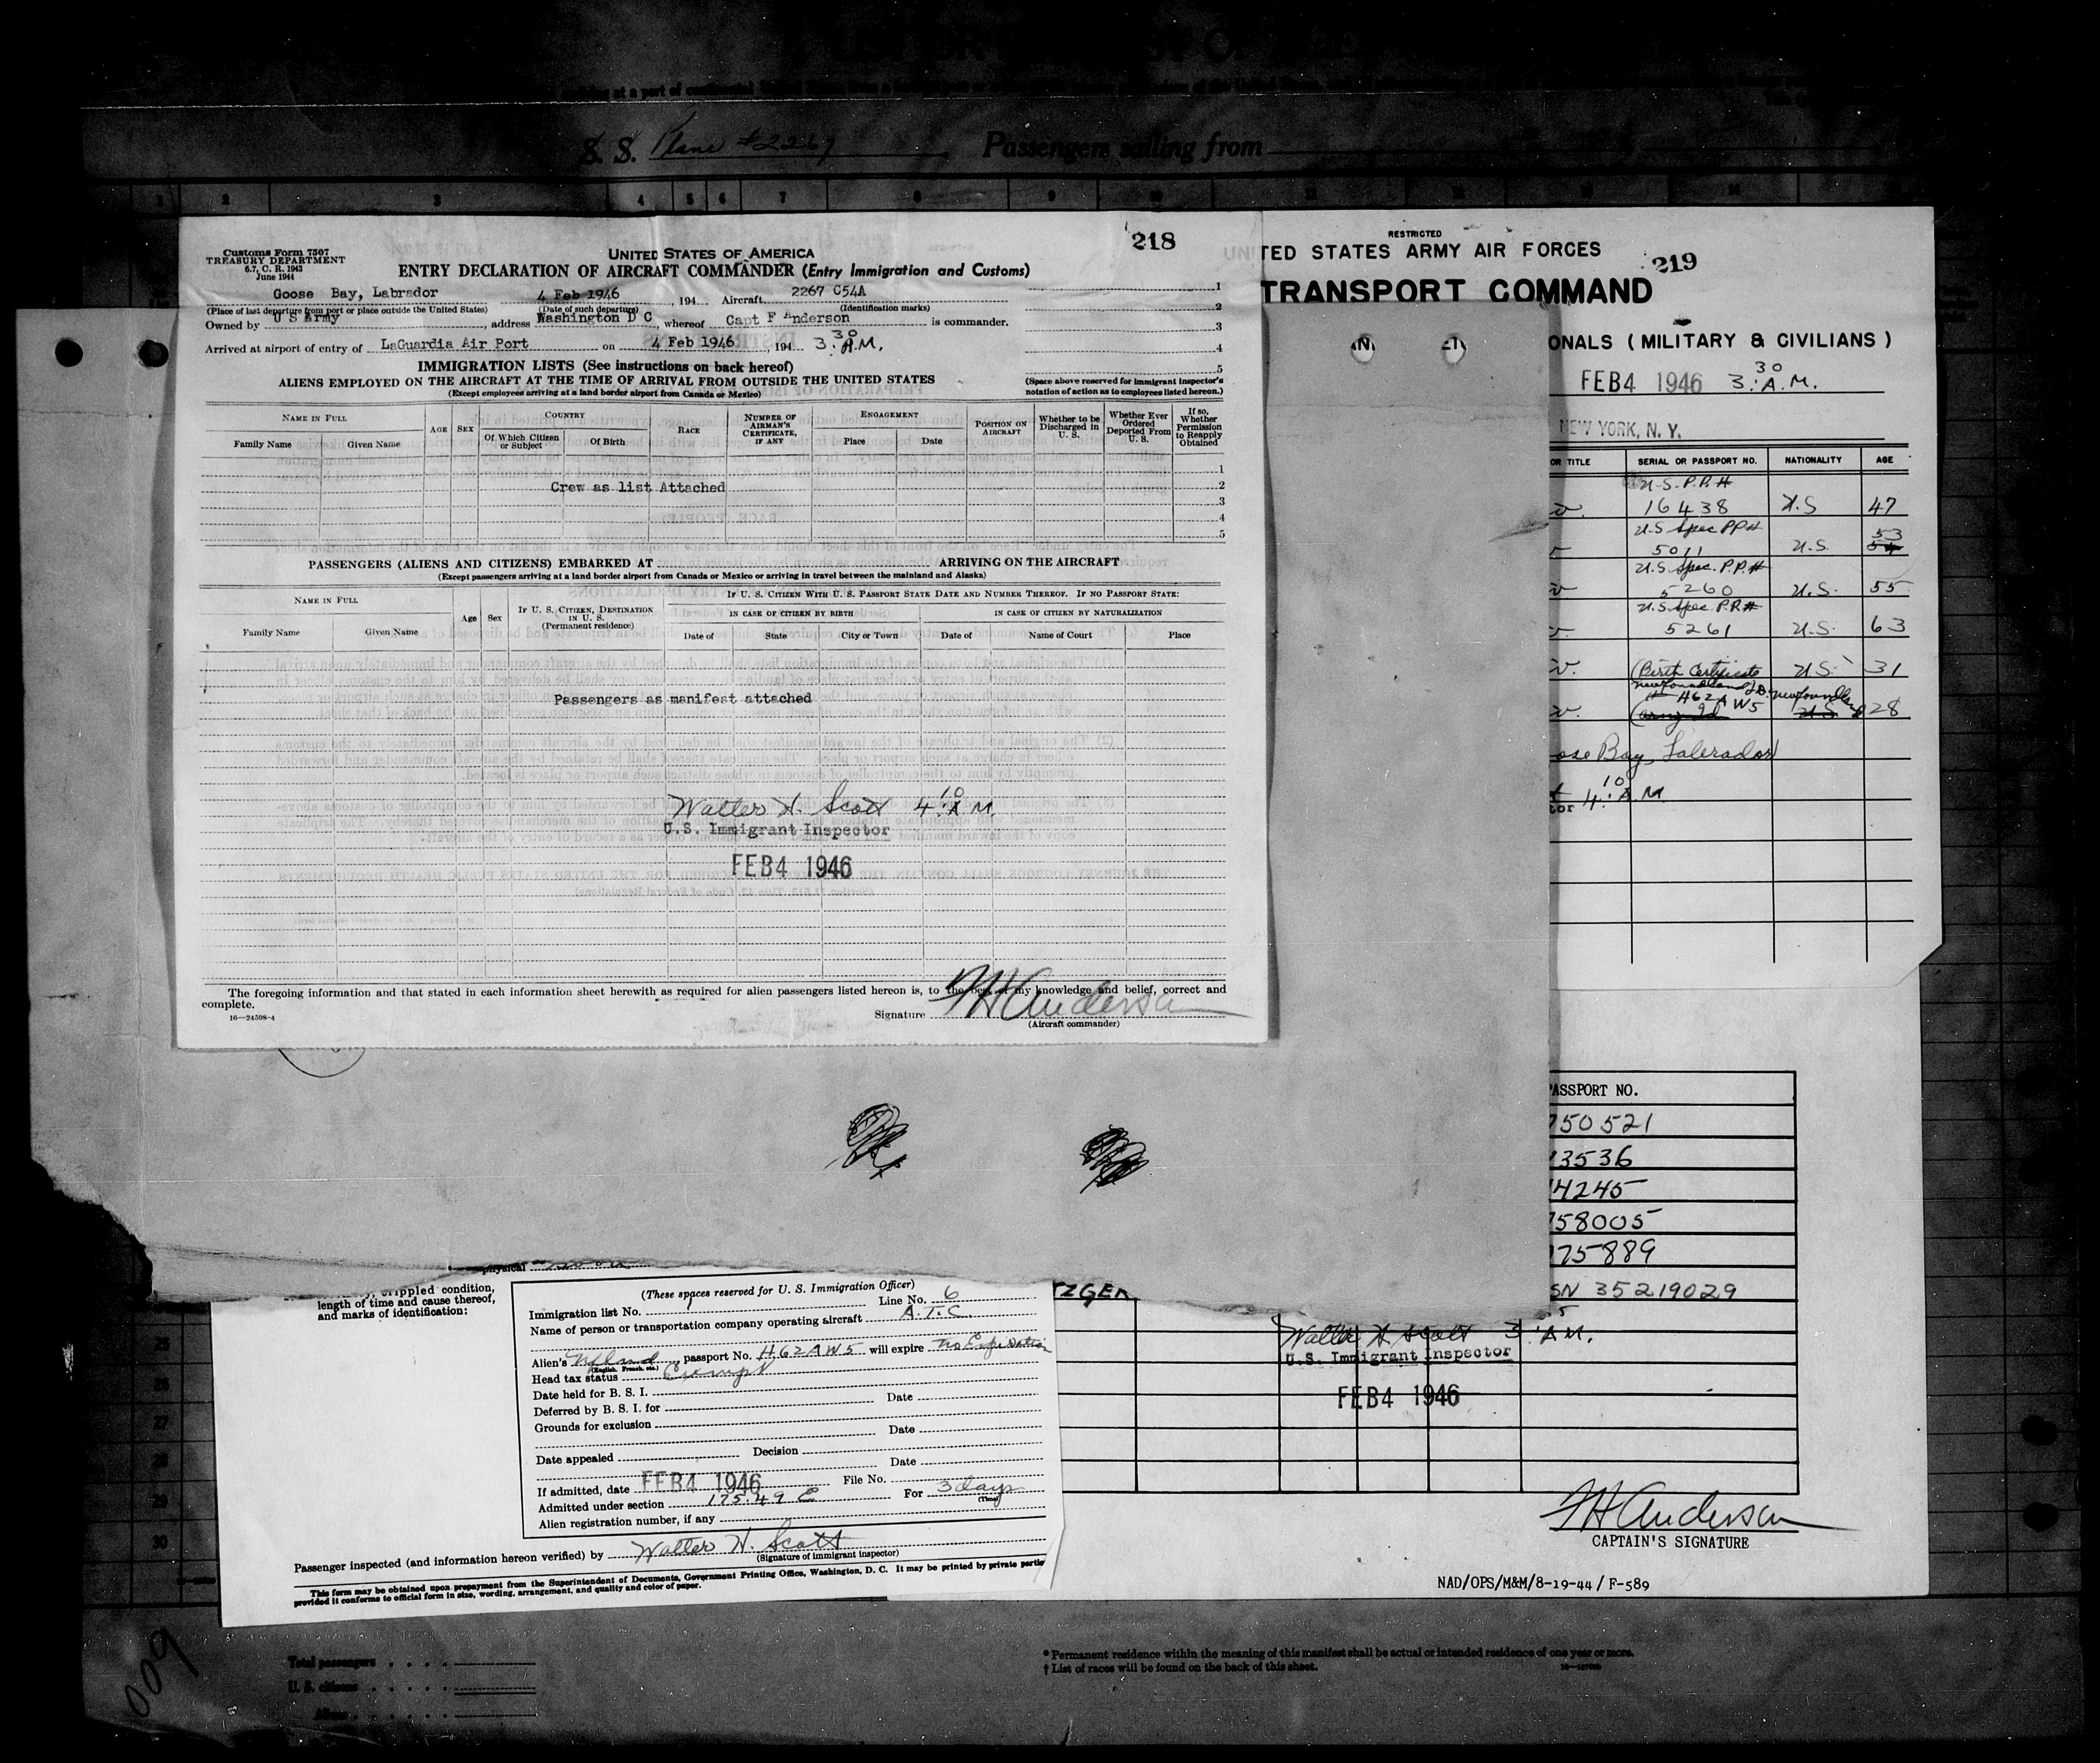 S. S. Plane #2267 Passengers sailing from
1 2 3 4 5 6 7 8 9 10 11 12 13 14
218
Customs Form 7507
TREASURY DEPARTMENT
6.7, C. R. 1943
June 1944
UNITED STATES OF AMERICA
ENTRY DECLARATION OF AIRCRAFT COMMANDER (Entry Immigration and Customs)
Goose Bay, Labrador 4 Feb 1946, 194 Aircraft 2267 C54A
(Place of last departure from port or place outside the United States) (Date of such departure) (Identification marks)
Owned by U S Army, address Washington D C, whereof Capt F Anderson is commander.
Arrived at airport of entry of LaGuardia Air Port on 4 Feb 1946, 194 3:30 A.M.
1
2
3
4
5
IMMIGRATION LISTS (See instructions on back hereof)
ALIENS EMPLOYED ON THE AIRCRAFT AT THE TIME OF ARRIVAL FROM OUTSIDE THE UNITED STATES
(Except employees arriving at a land border airport from Canada or Mexico)
(Space above reserved for immigrant inspector's notation of action as to employees listed hereon.)
NAME IN FULL
Family Name Given Name
AGE SEX
COUNTRY
Of Which Citizen or Subject Of Birth
RACE
NUMBER OF AIRMAN'S CERTIFICATE, IF ANY
ENGAGEMENT
Place Date
POSITION ON AIRCRAFT
Whether to be Discharged in U. S.
Whether Ever Ordered Deported From U. S.
If so, Whether Permission to Reapply Obtained
1
Crew as list Attached 2
3
4
5
PASSENGERS (ALIENS AND CITIZENS) EMBARKED AT ARRIVING ON THE AIRCRAFT
(Except passengers arriving at a land border airport from Canada or Mexico or arriving in travel between the mainland and Alaska)
NAME IN FULL
Family Name Given Name
Age Sex
IF U. S. CITIZEN, DESTINATION IN U. S.
(Permanent residence)
IF U. S. CITIZEN WITH U. S. PASSPORT STATE DATE AND NUMBER THEREOF. IF NO PASSPORT STATE:
IN CASE OF CITIZEN BY BIRTH IN CASE OF CITIZEN BY NATURALIZATION
Date of State City or Town Date of Name of Court Place
Passengers as manifest attached
Walter H. Scott 4:10 A M.
U.S. Immigrant Inspector
FEB 4 1946
The foregoing information and that stated in each information sheet herewith as required for alien passengers listed hereon is, to the best of my knowledge and belief, correct and
complete.
16—24598-4
Signature F H Anderson
(Aircraft commander)
RESTRICTED
UNITED STATES ARMY AIR FORCES
219
TRANSPORT COMMAND
ONALS ( MILITARY & CIVILIANS )
FEB 4 1946 3:30 A.M.
NEW YORK, N. Y.
OR TITLE SERIAL OR PASSPORT NO. NATIONALITY AGE
U.S. P.P.#
16438 U.S 47
U.S Spec PP#
5011 U.S. 53 54
U.S Spec. P.P.#
5260 U.S. 55
U.S Spec P.P.#
5261 U.S. 63
(Birth Certificate U.S. 31
Newfoundland I.D.
# H62AW5 Newfoundland
(Army Id U.S 28
ose Bay, Labrador
tor 4:10 A.M.
PASSPORT NO.
750521
13536
14245
758005
175889
SN 35219029
TZGER
Walter H. Scott 3 A M.
U.S. Immigrant Inspector
FEB 4 1946
F H Anderson
CAPTAIN'S SIGNATURE
NAD/OPS/M&M/8-19-44 / F-589
physical
crippled condition,
length of time and cause thereof,
and marks of identification:
(These spaces reserved for U. S. Immigration Officer)
Immigration list No. 1 Line No. 6
Name of person or transportation company operating aircraft A.T.C.
Alien's Nfland passport No. H62AW5 will expire No Expiration
(English, French, etc.)
Head tax status Exempt
Date held for B. S. I.
Deferred by B. S. I. for Date
Grounds for exclusion
Date
Date appealed Decision
Date
If admitted, date FEB 4 1946 File No.
Admitted under section 175.49 E For 3 days
(Time)
Alien registration number, if any
Passenger inspected (and information hereon verified) by Walter H. Scott
(Signature of immigrant inspector)
This form may be obtained upon prepayment from the Superintendent of Documents, Government Printing Office, Washington, D. C. It may be printed by private parties
provided it conforms to official form in size, wording, arrangement, and quality and color of paper.
25
26
27
28
29
30
Total passengers
U. S. citizens
Aliens
* Permanent residence within the meaning of this manifest shall be actual or intended residence of one year or more.
† List of races will be found on the back of this sheet.
600